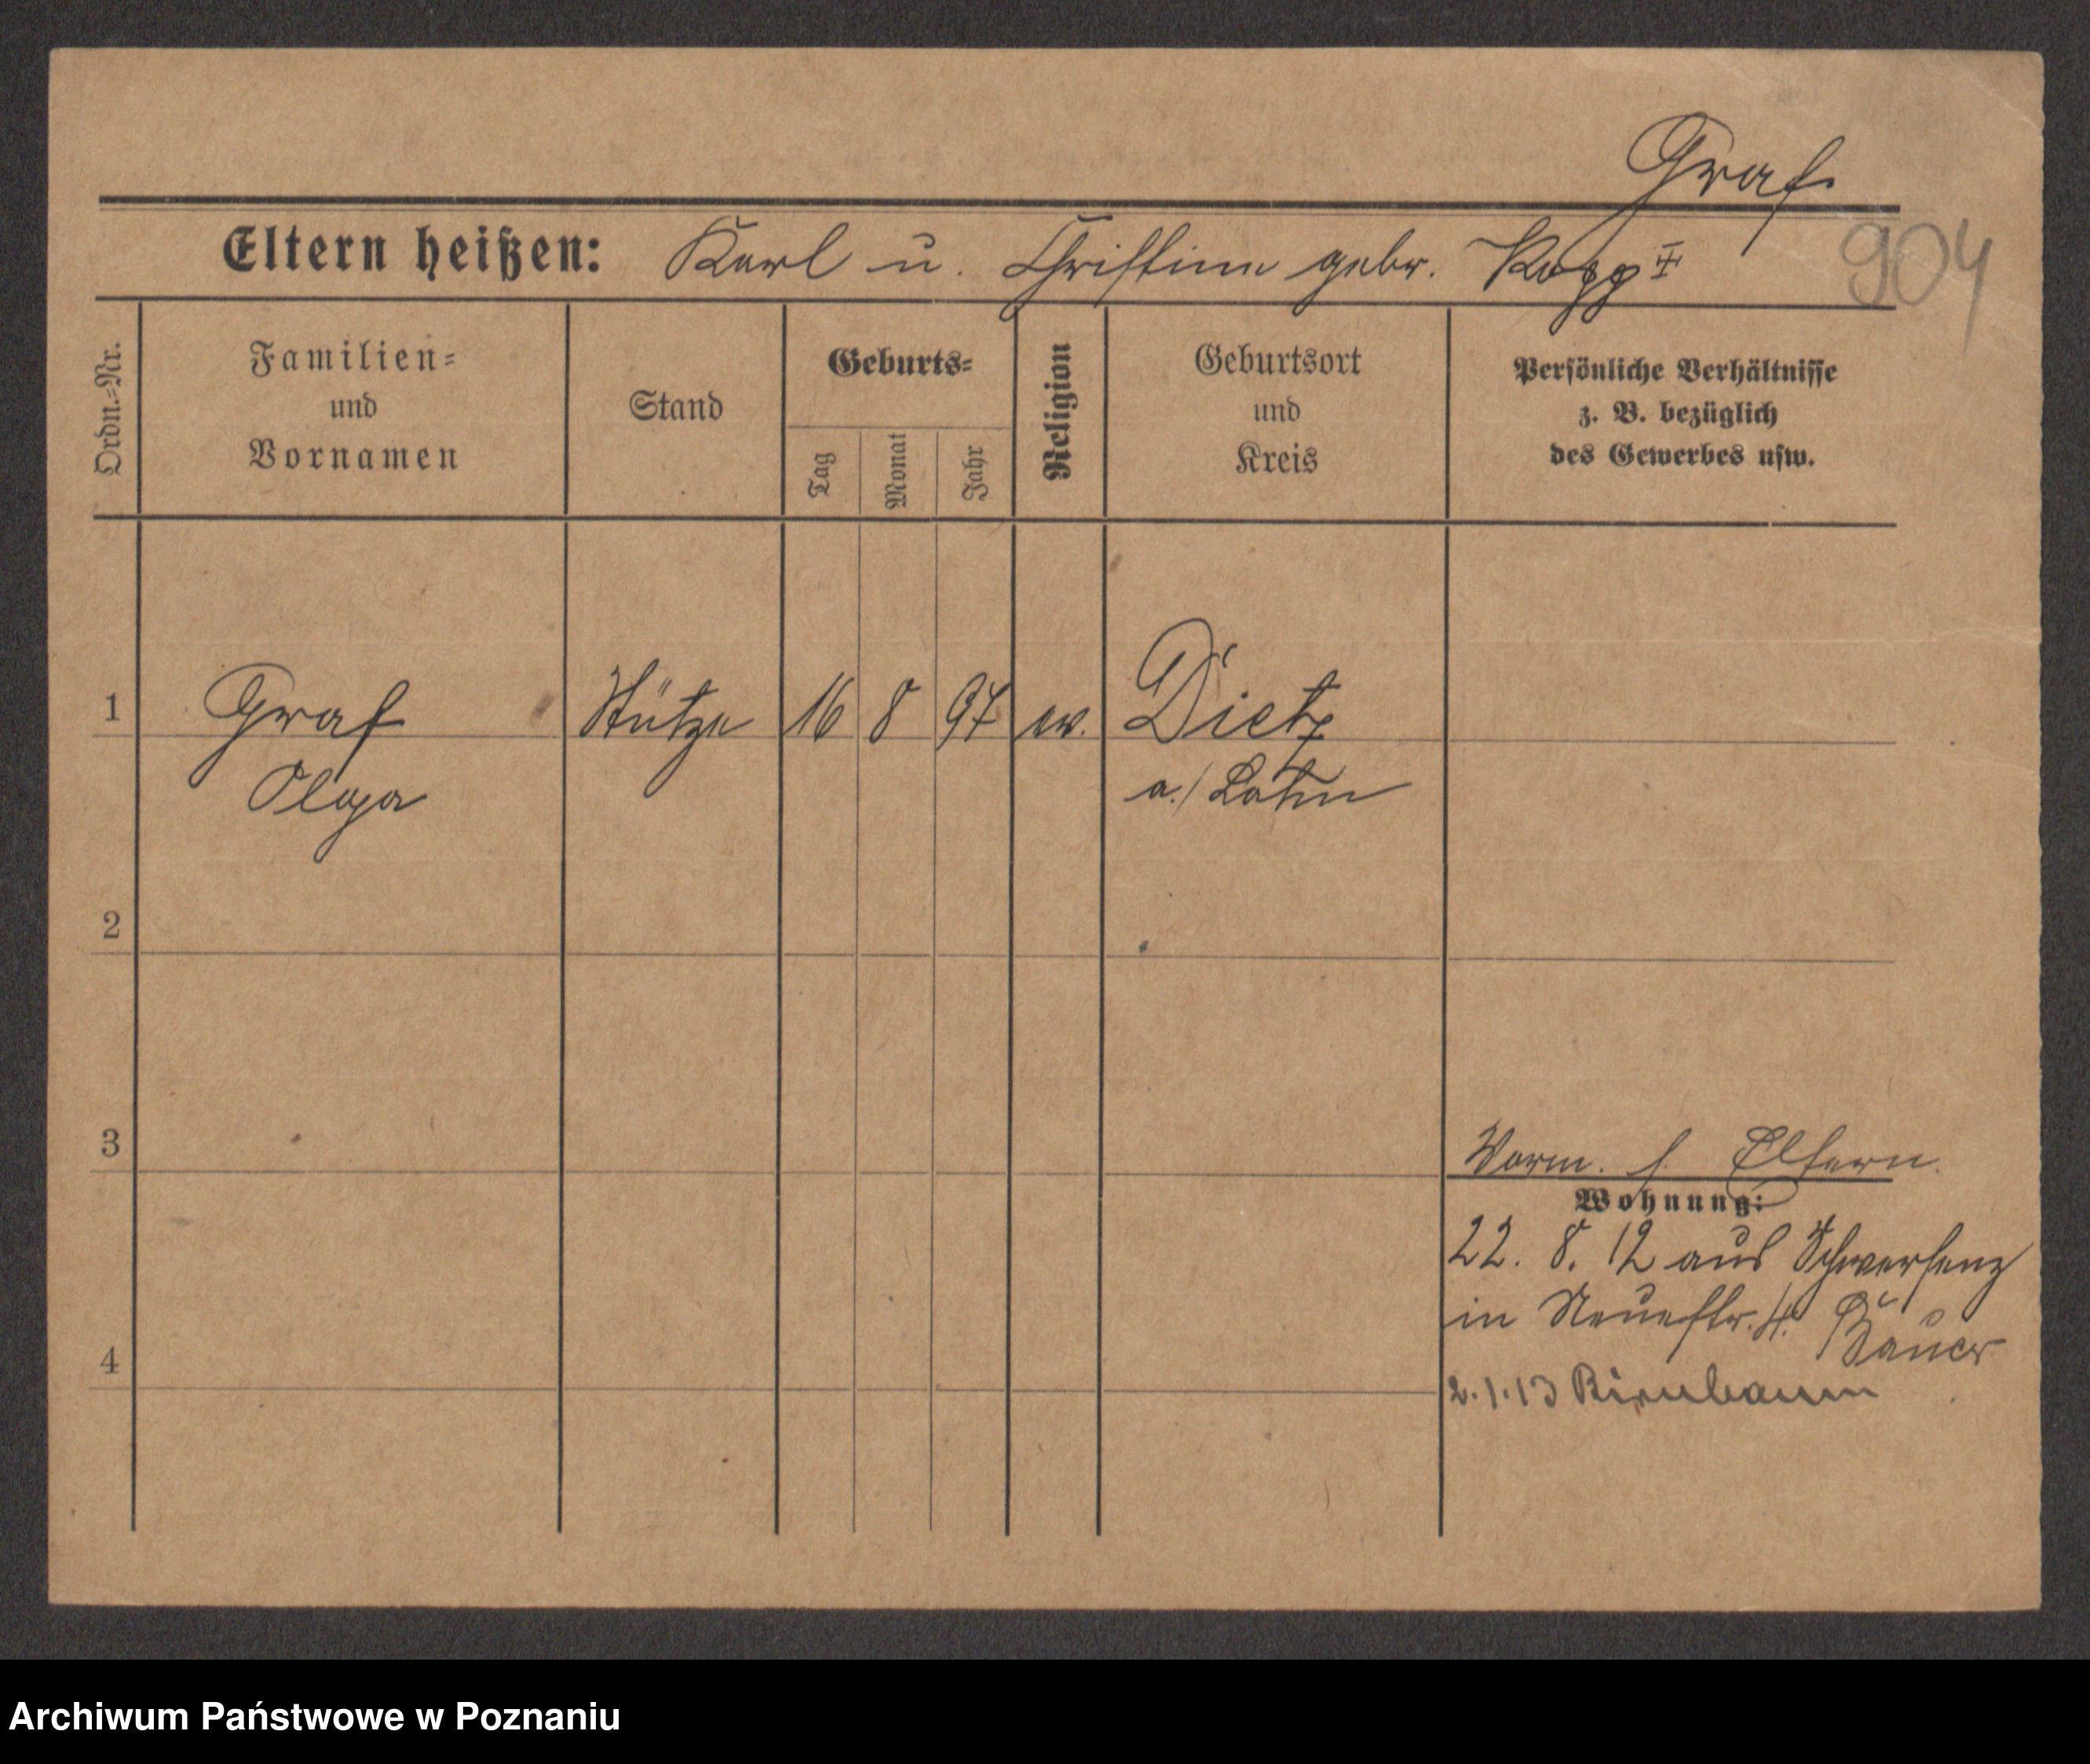 Graf
904
Eltern heißen: Karl u. Christine gebr.
Ordn.=Nr.
Familien=
und
Vornamen
Stand
Geburts=
Tag
Monat
Jahr
Religion
Geburtsort
und
Kreis
Persönliche Verhältnisse
z. B. bezüglich
des Gewerbes usw.
1 Graf Stütze 16 8 97 ev. Dietz
Olga a./Lahn
2
3
Vorm. s. Eltern.
Wohnung:
22. 8. 12 aus Schwersenz
in Neuestr. 4.
Bauer
4
2.1.13 Birnbaum
Archiwum Państwowe w Poznaniu